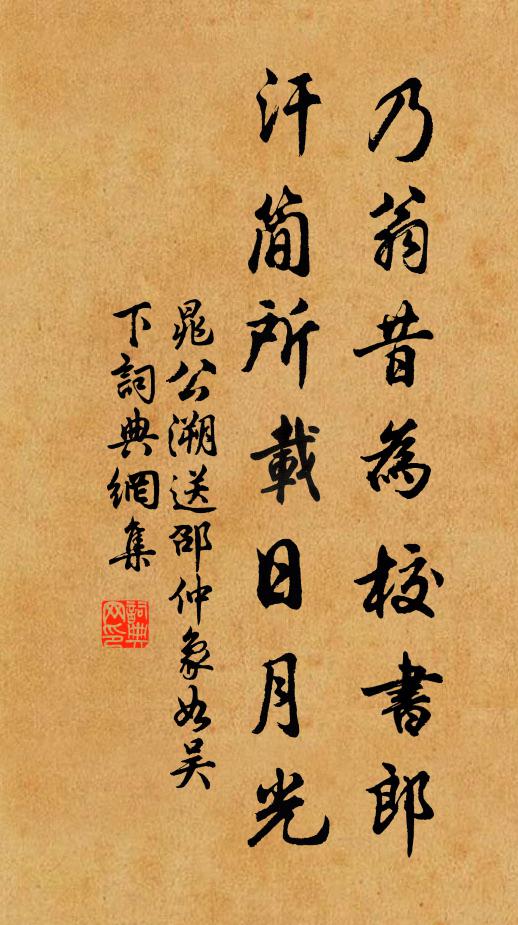 乃翁昔為校書郎
汗簡所載日月光
晁公溯送邵仲象如吴
下詞典網集
詞典
网印